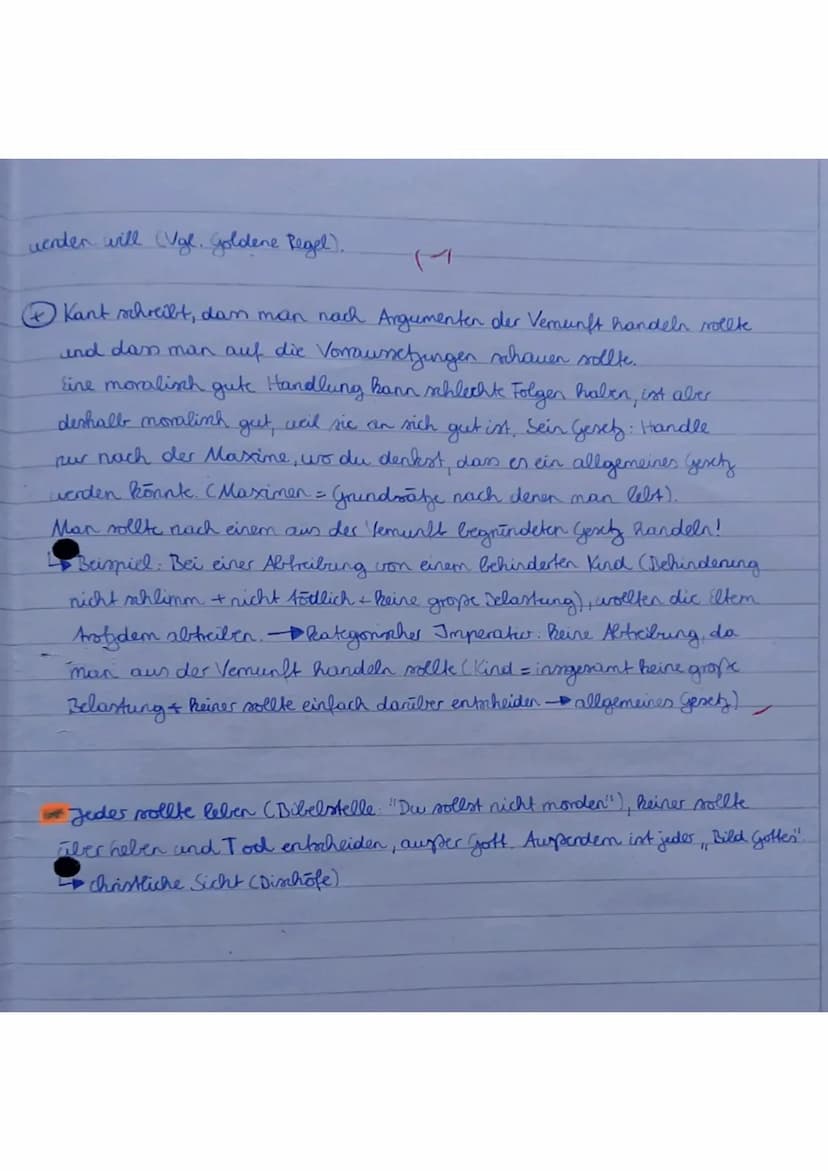 werden will (Vgl. Goldene Regel).
(-)
+ Kant schreibt, dass man nach Argumenten der Vernunft handeln sollte
und dass man auf die Vorraussetzungen schauen sollte.
Eine moralisch gute Handlung kann schlechte Folgen haben, ist aber
deshalb moralisch gut, weil sie an sich gut ist. Sein Gesetz: Handle
nur nach der Maxime, wo du denkst, dass es ein allgemeines Gesetz
werden könnte. (Maximen = Grundsätze nach denen man lebt).
Man sollte nach einem aus der Vernunft begründeten Gesetz handeln!
↳ Beispiel: Bei einer Abtreibung von einem behinderten Kind (Behinderung
nicht schlimm + nicht tödlich + keine große Belastung), wollten die Eltern
trotzdem abtreiben. → Kategorischer Imperativ: Keine Abtreibung, da
man aus der Vernunft handeln sollte (Kind = insgesamt keine große
Belastung + keiner sollte einfach darüber entscheiden → allgemeines Gesetz)
Jedes sollte leben (Bibelstelle: "Du sollst nicht morden"), keiner sollte
über Leben und Tod entscheiden, außer Gott. Außerdem ist jedes „Bild Gottes"
↳ christliche Sicht (Bischöfe)